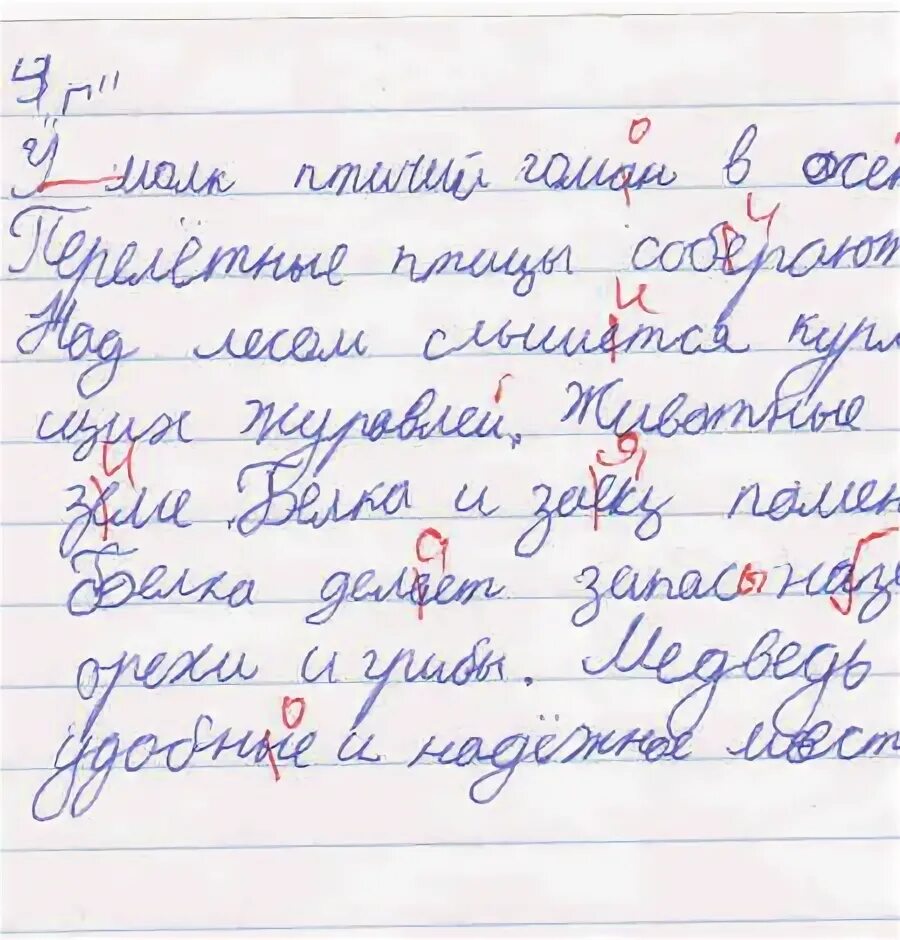 У молк птичий гоман в осен
Перелётные птицы соберают
Над лесом слышется курл
щих журавлей. Животные
земе. Белка и заец помен
Белка делает запасы на з
орехи и грибы. Медведь
удобные и надёжное мест